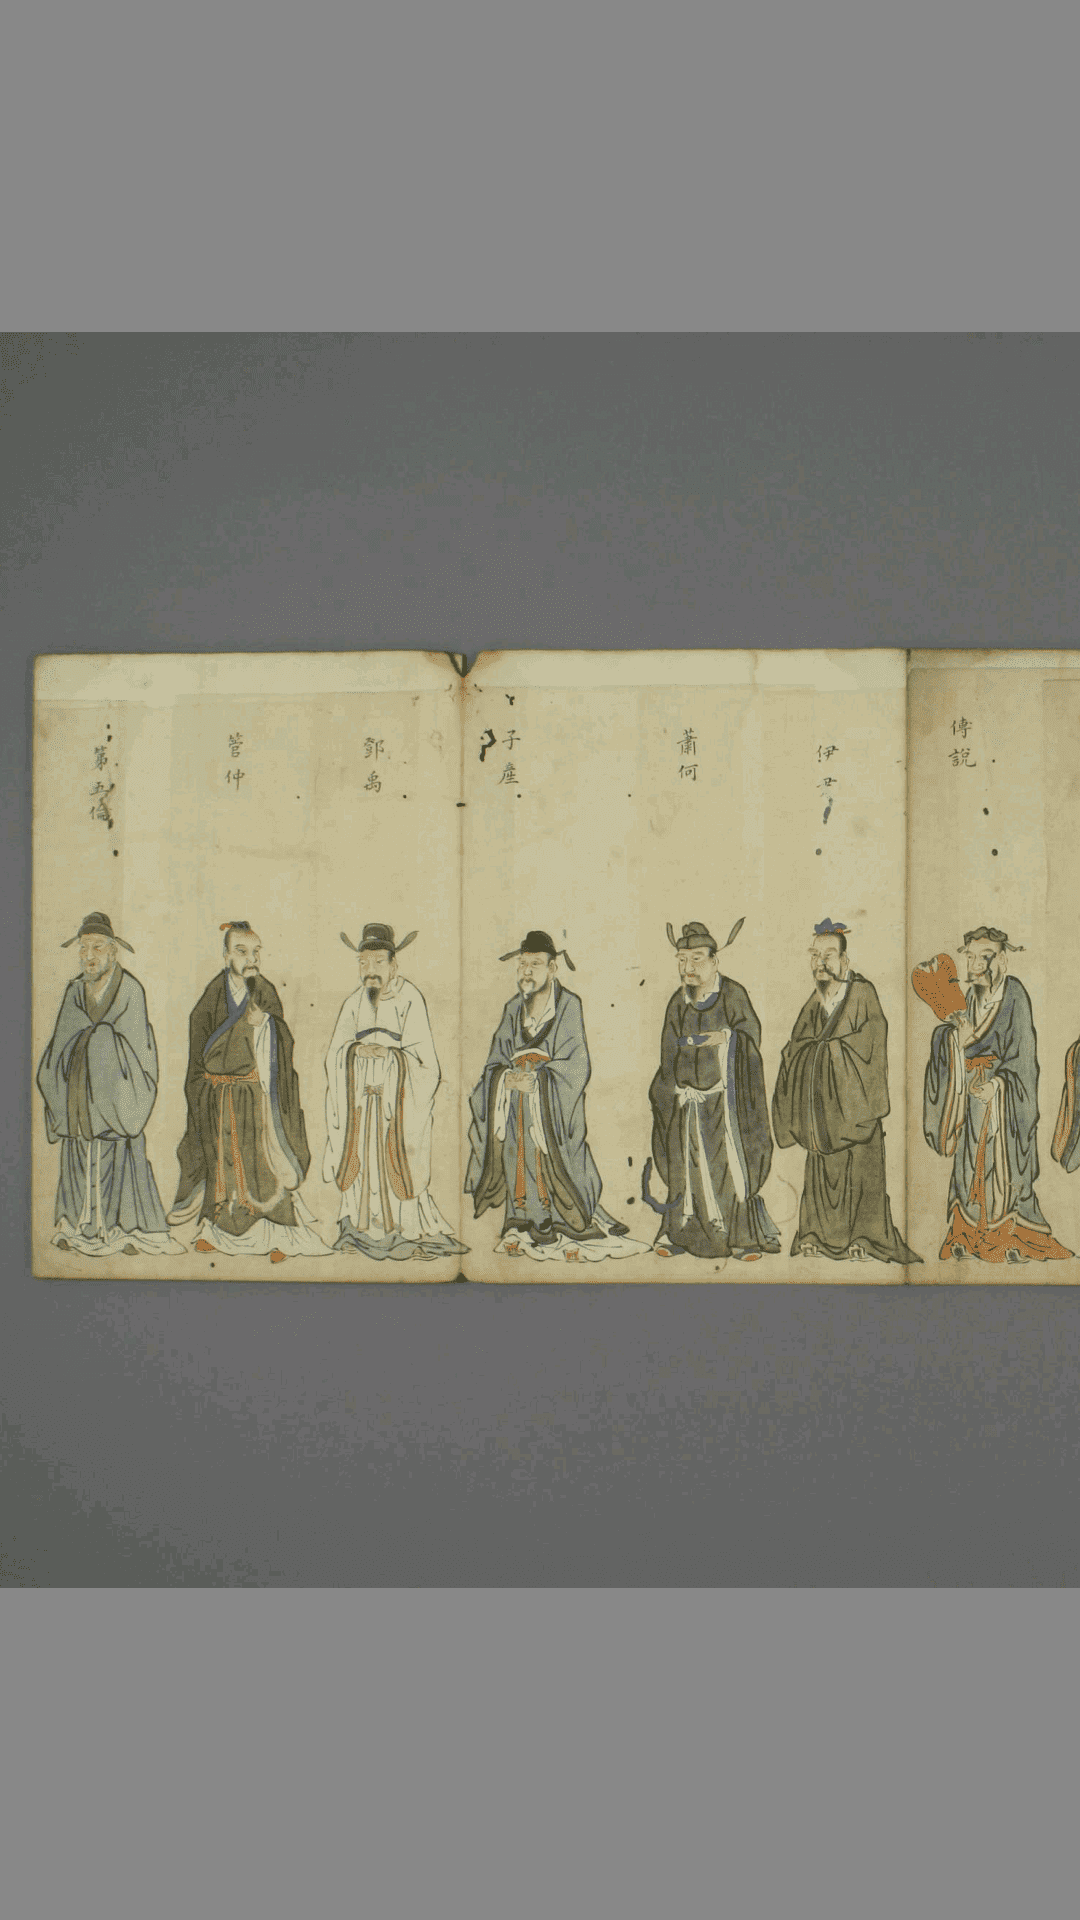 傅說
伊尹
蕭何
子產
鄧禹
管仲
第五倫